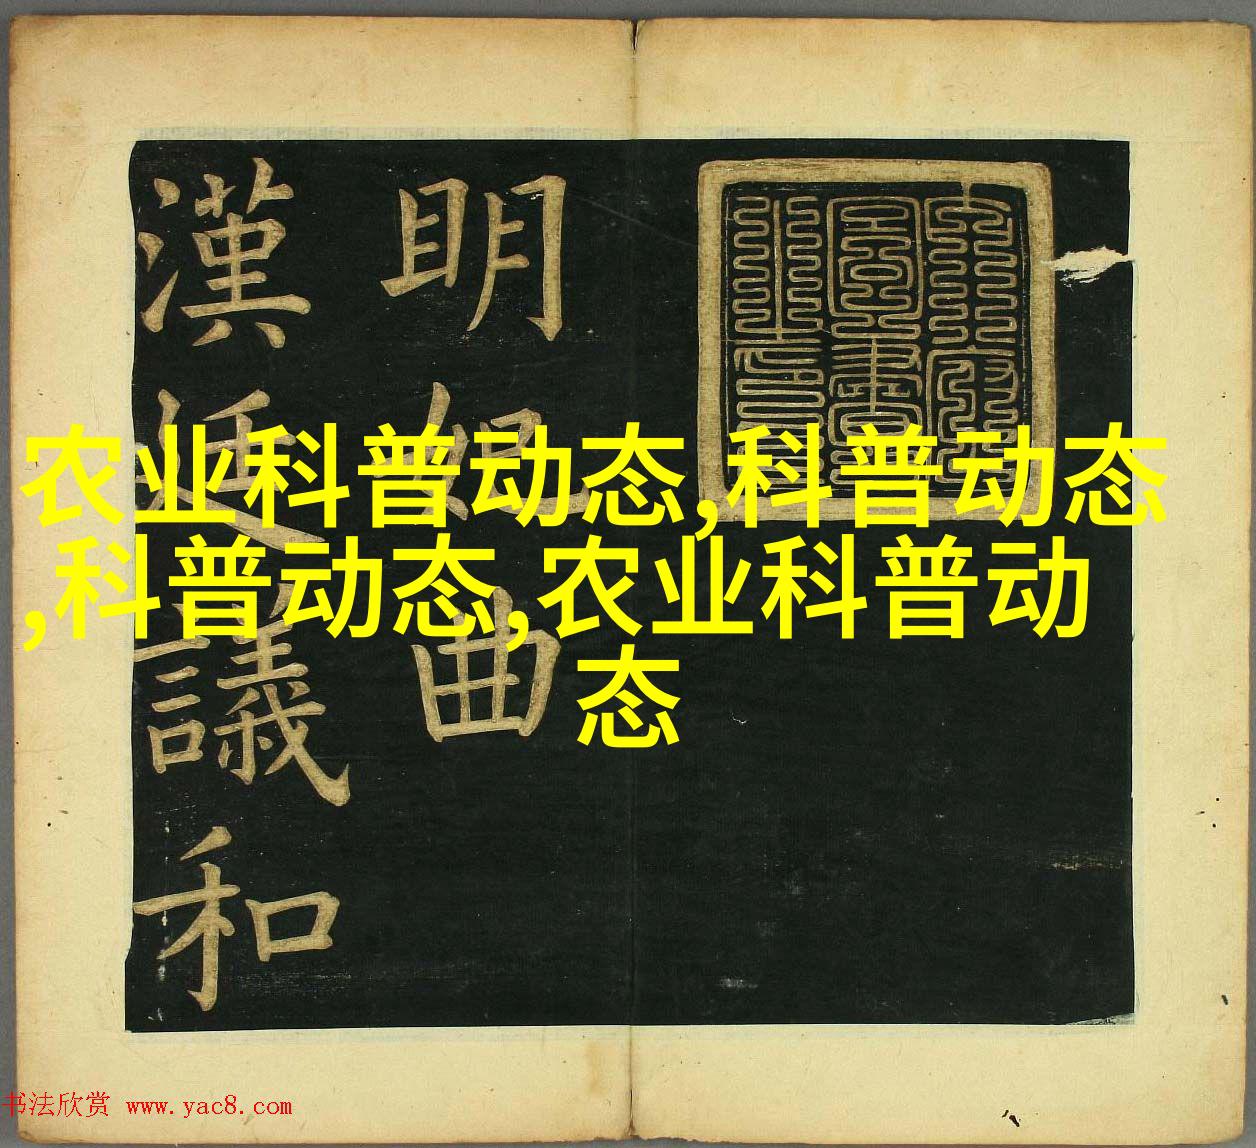 农业科普动态,科普动态
,科普动态,农业科普动
态
明妃曲
漢廷議和
书法欣赏 www.yac8.com